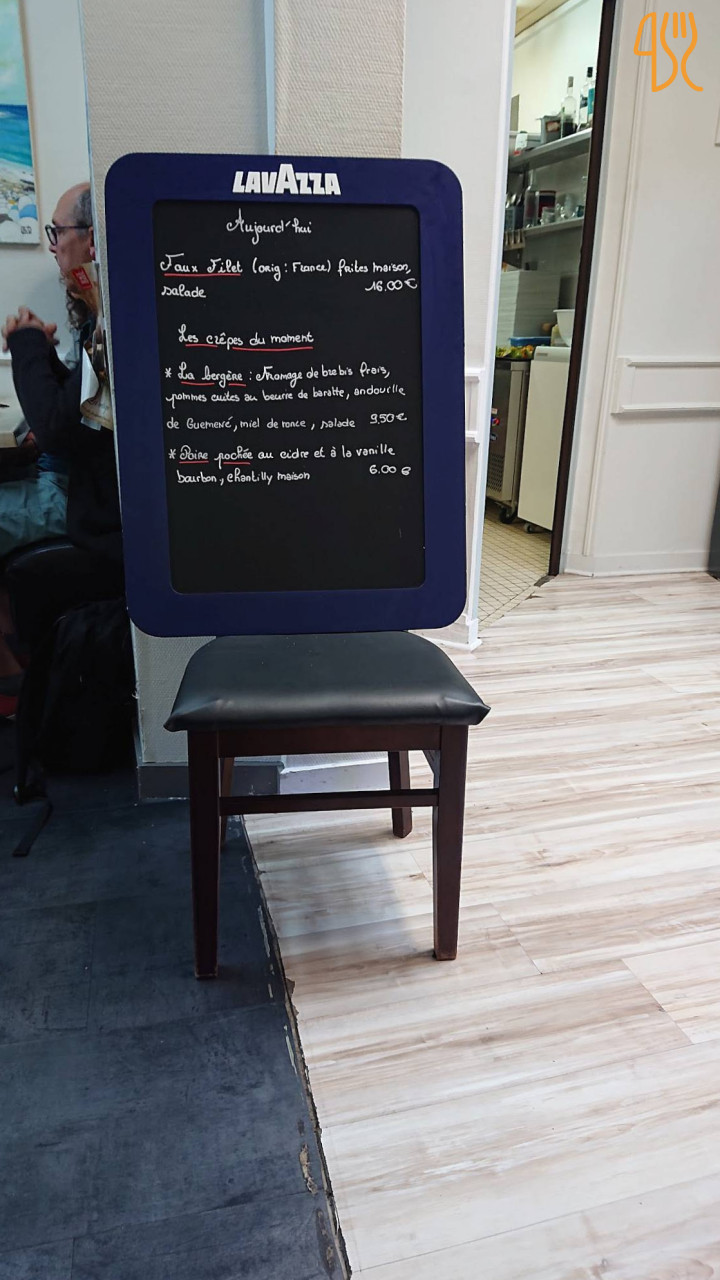 LAVAZZA
Aujourd'hui
Faux Filet (orig : France) frites maison,
salade 16.00 €
Les crêpes du moment
* La bergère : Fromage de brebis frais,
pommes cuites au beurre de baratte, andouille
de Guemené, miel de ronce, salade 9,50 €
* Poire pochée au cidre et à la vanille
bourbon, chantilly maison 6.00 €